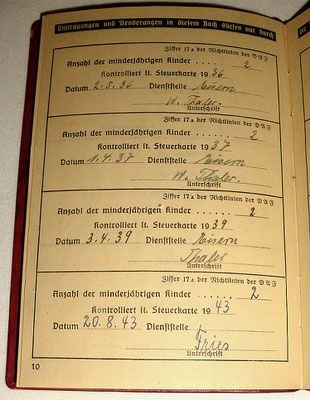 Eintragungen und Aenderungen in diesem Buch dürfen nur durch
Ziffer 17a der Richtlinien der DAF
Anzahl der minderjährigen Kinder ...... 2
Kontrolliert lt. Steuerkarte 1936
Datum 2.5.36 Dienststelle
W. Thaler.
Unterschrift
Ziffer 17a der Richtlinien der DAF
Anzahl der minderjährigen Kinder ...... 2
Kontrolliert lt. Steuerkarte 1937
Datum 1.4.37 Dienststelle
W. Thaler.
Unterschrift
Ziffer 17a der Richtlinien der DAF
Anzahl der minderjährigen Kinder ...... 2
Kontrolliert lt. Steuerkarte 1939
Datum 3.4.39 Dienststelle
Thaler
Unterschrift
Ziffer 17a der Richtlinien der DAF
Anzahl der minderjährigen Kinder ...... 2
Kontrolliert lt. Steuerkarte 1943
Datum 20.8.43 Dienststelle
Fries
Unterschrift
10